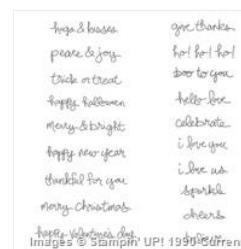 hugs & kisses
peace & joy
trick or treat
happy halloween
merry & bright
happy new year
thankful for you
merry christmas
happy valentine's day
give thanks
ho! ho! ho!
boo to you
hello love
celebrate
i love you
i love us
sparkle
cheers
believe
Images © Stampin' UP! 1990-Curren